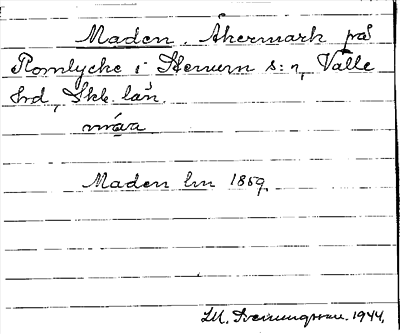 Maden. Åkermark på
Romlycke i Stenum s:n, Valle
hrd, Skb. län.
måɑ
Maden lm 1859
I.M. Sveinungsson. 1944.